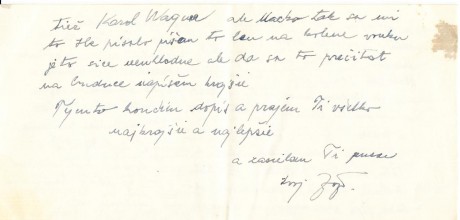 tiež Karol Wagner ale Macko tak sa mi
to zle písalo píšem to len na kolene v ruku
je to síce neuhladne ale dá sa to prečítať
na budúce napíšem krajšie
Týmto končím dopis a prajem Ti všetko
najkrajšie a najlepšie
a zasielam Ti pusse
tvoj Jožo